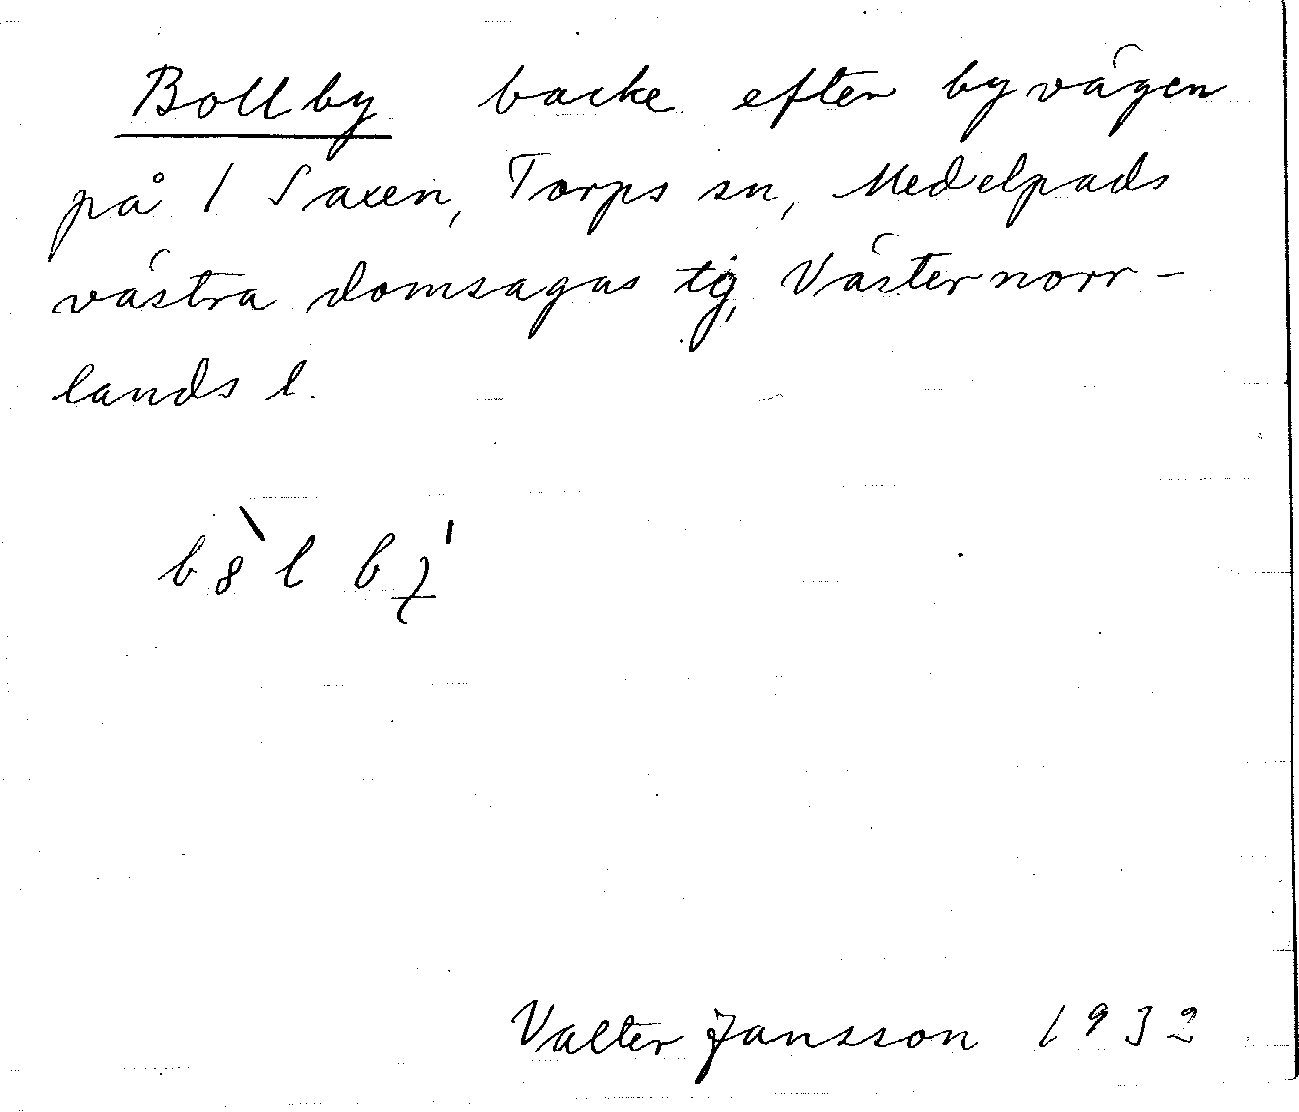 Bollby backe efter byvägen
på 1 Saxen, Torps sn, Medelpads
västra domsagas tg, Västernorr-
lands l.
Valter Jansson 1932